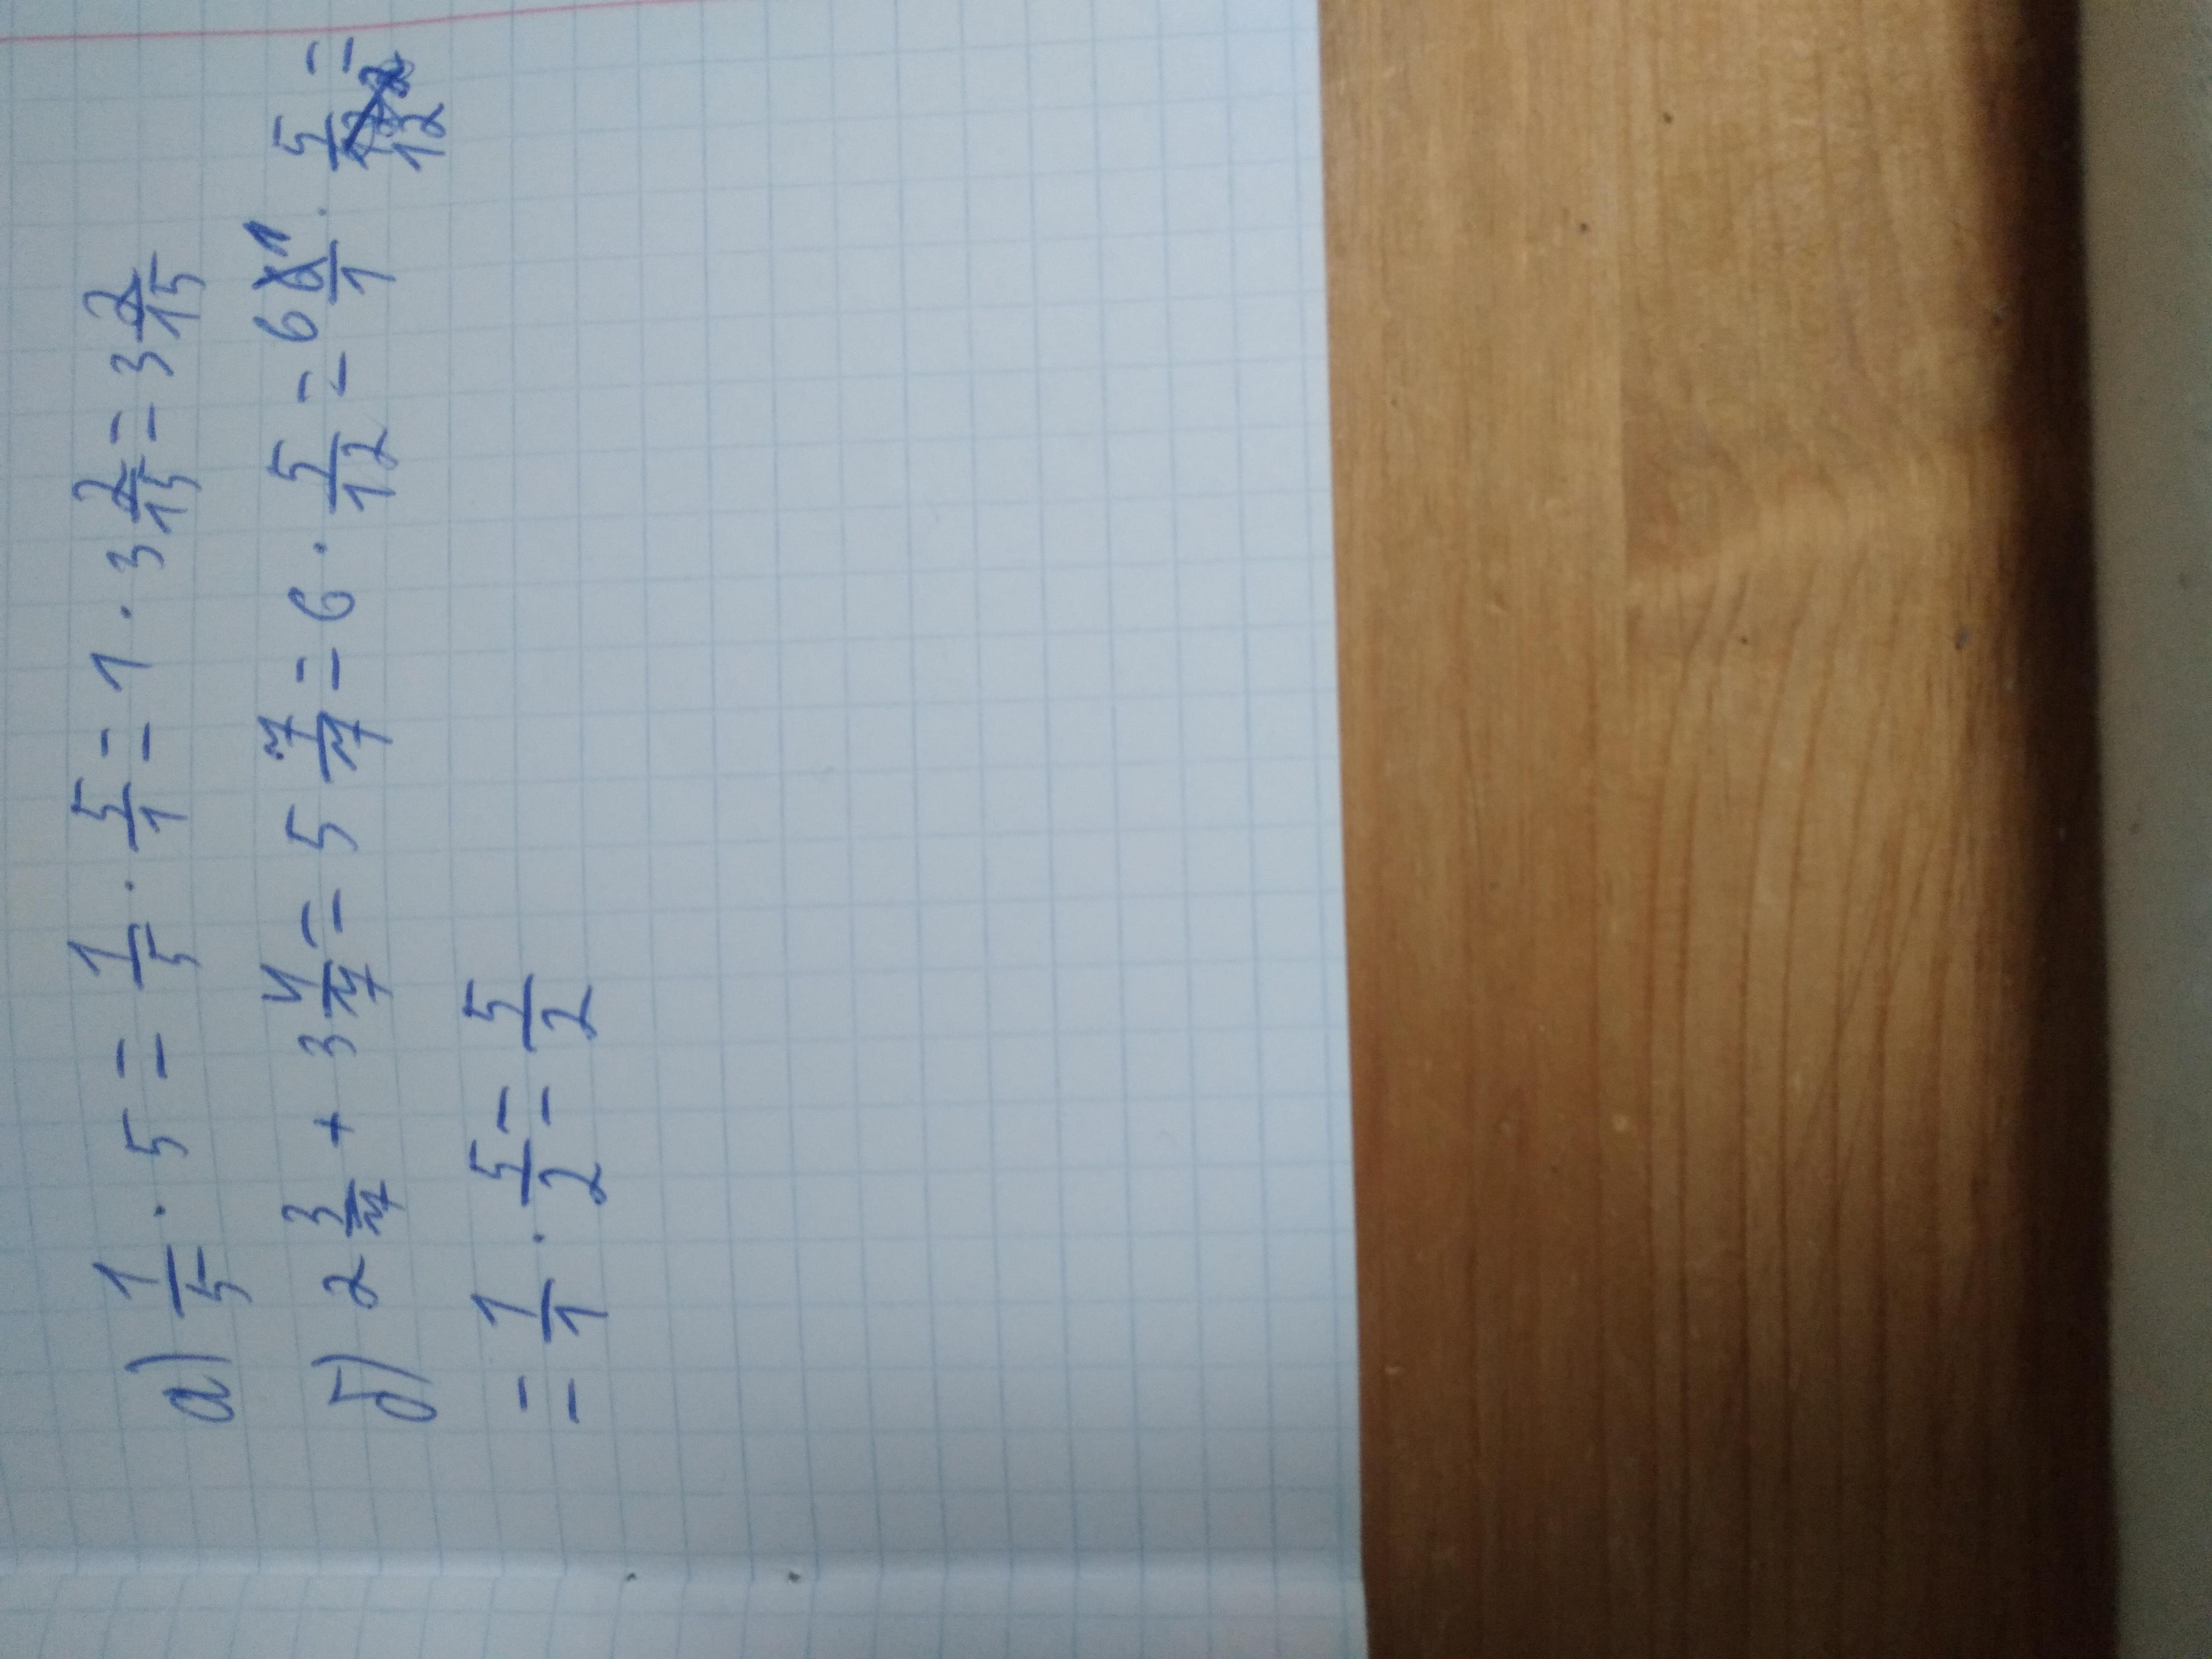 а) 1/5 · 5 = 1/5 · 5/1 = 1 · 3 2/15 = 3 2/15
б) 2 3/7 + 3 4/7 = 5 7/7 = 6 · 5/12 = 6 6 1/1 · 5/12 =
= 1/1 · 5/2 = 5/2